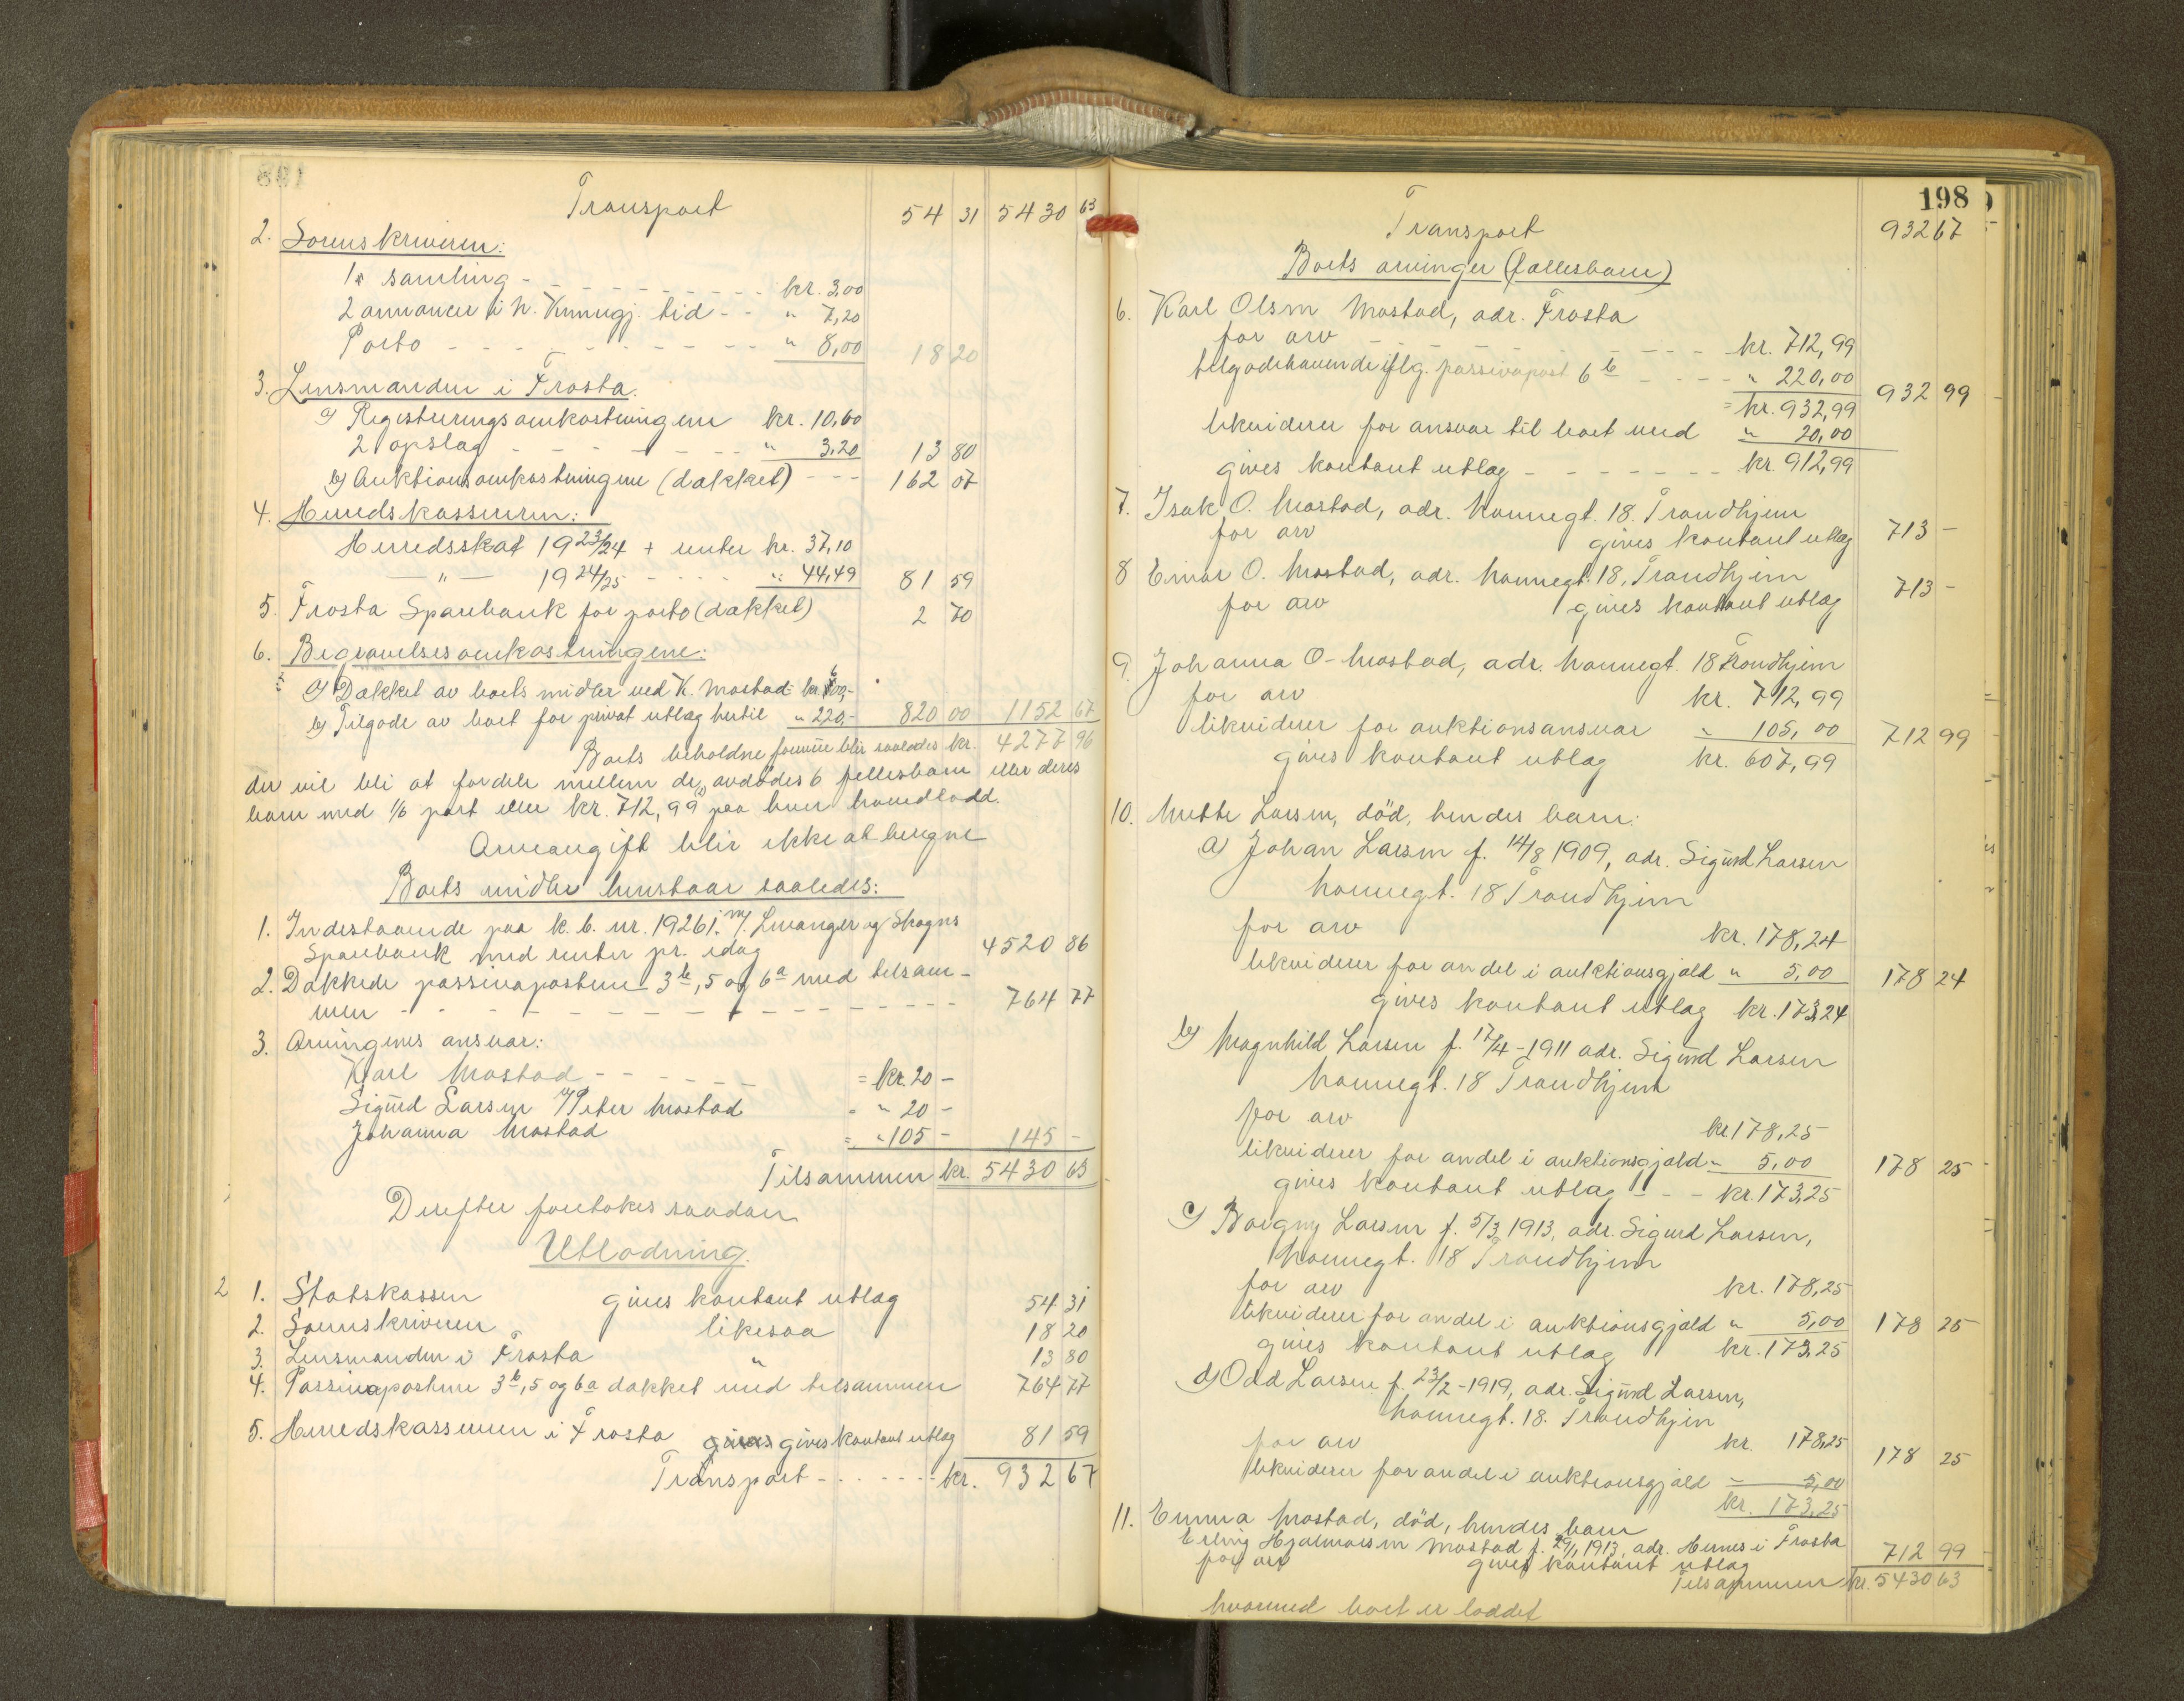 Transport 54 31 5430 63
2. Sorenskriveren:
1 samling - - - kr. 3,00
2 annoncer i N. Kunngj. tid - - " 7,20
Porto - - - " 8,00 18 20
3. Lensmanden i Frosta.
a) Registreringsomkostningene kr. 10,60
2 opslag - - - " 3,20 13 80
b) Auktionsomkostningene (dækket) - - - 162 07
4. Herredskasseren:
Herredsskat 1923/24 + renter kr. 37,10
— " — 1924/25 - - - " 44,49 81 59
5. Frosta Sparebank for porto (dækket) 2 70
6. Begravelsesomkostningene:
a) Dækket av boets midler ved K. Mostad kr. 600,-
b) Tilgode av boet for privat utlæg hertil " 220,- 820 00 1152 67
Boets beholdne formue blir saaledes kr. 4277 96
der vil bli at fordele mellem de avdødes 6 fellesbarn eller deres
barn med 1/6 part eller kr. 712,99 paa hver hovedlodd.
Arveavgift blir ikke at beregne
Boets midler henstaar saaledes:
1. Indestaaende paa k. b. nr. 19261 i Levanger og Skognes
Sparebank med renter pr. idag 4520 86
2. Dækkede passivaposterne 3b, 5 og 6a med tilsam-
men - - - 764 77
3. Arvingenes ansvar:
Karl Mostad - - - = kr. 20 -
Sigurd Larsen v/ Peter Mostad = " 20 -
Johanna Mostad = " 105 - 145 -
Tilsammen kr. 5430 63
Derefter foretokes saadan
Utlodning.
2 1. Statskassen gives kontant utlæg 54 31
2. Sorenskriveren likesaa 18 20
3. Lensmanden i Frosta " 13 80
4. Passivaposterne 3b, 5 og 6a dækket med tilsammen 764 77
5. Herredskasseren i Frosta gives gives kontant utlæg 81 59
Transport - - - kr. 932 67
198
Transport 932 67
Boets arvinger (fællesbarn)
6. Karl Olsen Mostad, adr. Frosta
for arv - - - kr. 712,99
tilgodehavende iflg. passivapost 6b - - - " 220,00 932 99
= kr. 932,99
likviderer for ansvar til boet med " 20,00
gives kontant utlæg - - - kr. 912,99
7. Isak O. Mostad, adr. Nonnegt. 18. Trondhjem
for arv gives kontant utlæg 713 -
8 Einar O. Mostad, adr. Nonnegt. 18, Trondhjem
for arv gives kontant utlæg 713 -
9. Johanna O- Mostad, adr. Nonnegt. 18 Trondhjem
for arv kr. 712,99
likviderer for auktionsansvar " 105,00 712 99
gives kontant utlæg kr. 607,99
10. Mette Larsen, död, hendes barn:
a) Johan Larsen f. 14/8 1909, adr. Sigurd Larsen
Nonnegt. 18 Trondhjem
for arv kr. 178,24
likviderer for andel i auktionsgjæld " 5,00 178 24
gives kontant utlæg kr. 173,24
b) Magnhild Larsen f. 17/4 - 1911 adr. Sigurd Larsen
Nonnegt. 18 Trondhjem
for arv kr. 178,25
likviderer for andel i auktionsgjæld " 5,00 178 25
gives kontant utlæg - - - kr. 173,25
c) Borgny Larsen f. 5/3 1913, adr. Sigurd Larsen,
Nonnegt. 18 Trondhjem
for arv kr. 178,25
likviderer for andel i auktionsgjæld " 5,00 178 25
gives kontant utlæg kr. 173,25
d) Odd Larsen f. 23/2 - 1919, adr. Sigurd Larsen,
Nonnegt. 18. Trondhjem
for arv kr. 178,25 178 25
likviderer for andel i auktionsgjæld " 5,00
kr. 173,25
11. Emma Mostad, död, hendes barn
Erling Hjalmarsen Mostad f. 29/1 1913, adr. Hernes i Frosta
for arv gives kontant utlæg 712 99
Tilsammen kr. 5430 63
hvormed boet er loddet